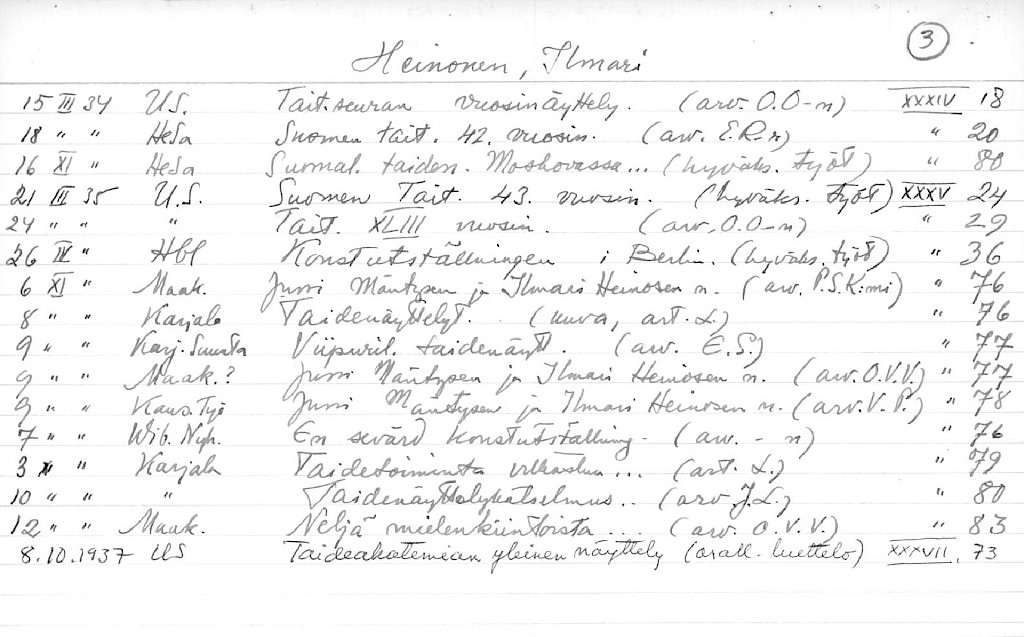 3
Heinonen, Ilmari
15 III 34 U.S. Tait.seuran vuosinäyttely. (arv. O.O-n) XXXIV 18
18 " " HeSa Suomen tait. 42. vuosin. (arv. E.R.n) " 20
16 XI " HeSa Suomal. taiden. Moskovassa... (hyväks. työt) " 80
21 III 35 U.S. Suomen Tait. 43. vuosin. (hyväks. työt) XXXV 24
24 " " " Tait. XLIII vuosin. (arv. O.O-n) " 29
26 IV " Hbl Konstutställningen i Berlin. (hyväks. työt) " 36
6 XI " Maak. Jussi Mäntysen ja Ilmari Heinosen n. (arv. P.S.K:mi) " 76
8 " " Karjala Taidenäyttelyt. (kuva, art. L.) " 76
9 " " Karj. Suunta Viipuril. taidenäytt. (arv. E.S.) " 77
9 " " Maak.? Jussi Mäntysen ja Ilmari Heinosen n. (arv. O.V.V.) " 77
9 " " Kans.Työ Jussi Mäntysen ja Ilmari Heinosen n. (arv. V.P.) " 78
7 " " Wib. Nyh. En sevärd konstutställning. (arv. - n) " 76
3 " Karjala Taidetoiminta vilkastun... (art. L.) " 79
10 " " " Taidenäyttelykatselmus.. (arv J.L.) " 80
12 " " Maak. Neljä mielenkiintoista .... (arv. O.V.V.) " 83
8.10.1937 US Taideakatemian yleinen näyttely (osall. luettelo) XXXVII, 73